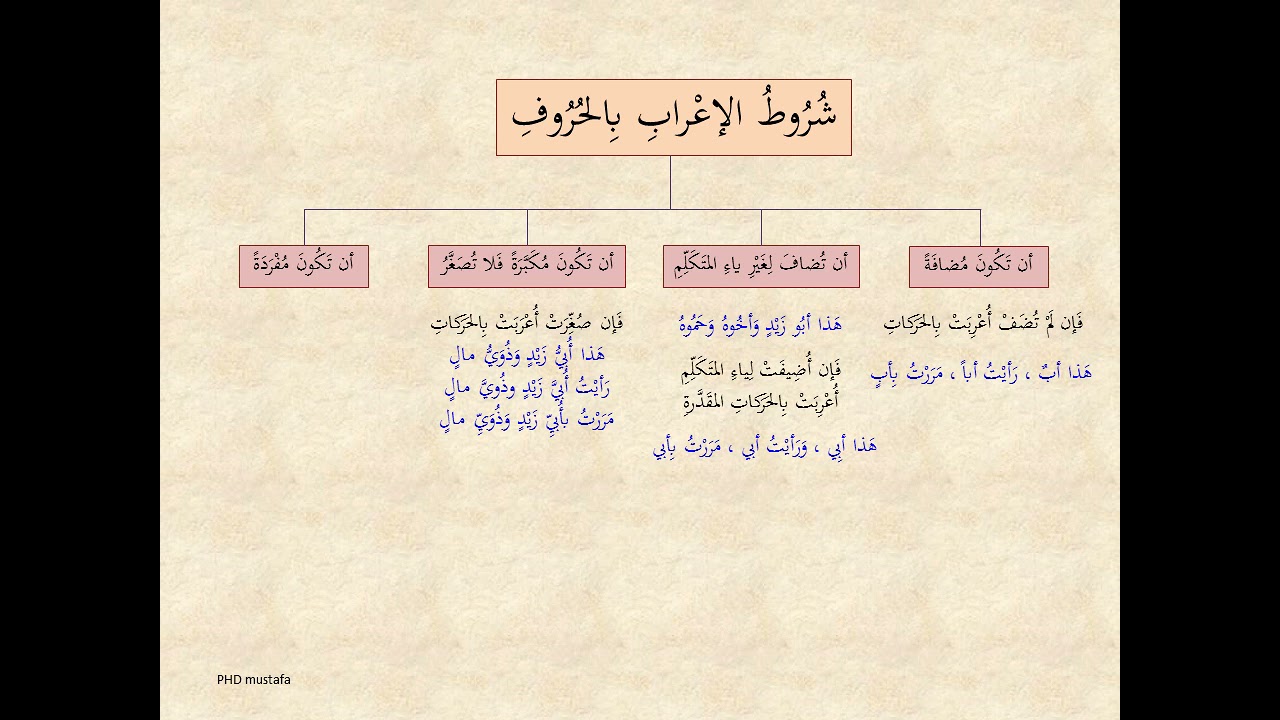 شُرُوطُ الإعْرابِ بِالحُرُوفِ
أن تَكُونَ مُضافَةً
فَإن لَمْ تُضَفْ أُعْرِبَتْ بِالحَرَكاتِ
هَذا أبٌ ، رَأيْتُ أباً ، مَرَرْتُ بِأبٍ
أن تُضافَ لِغَيْرِ ياءِ المتَكَلِّمِ
هَذا أبُو زَيْدٍ وَأخُوهُ وَحَمُوهُ
فَإن أُضِيفَتْ لِياءِ المتَكَلِّمِ
أُعْرِبَتْ بِالحَرَكاتِ المقَدَّرةِ
هَذا أبِي ، وَرَأيْتُ أبي ، مَرَرْتُ بِأبي
أن تَكُونَ مُكَبَّرَةً فَلا تُصَغَّرُ
فَإن صُغِّرَتْ أُعْرَبَتْ بِالحَرَكاتِ
هَذا أُبَيُّ زَيْدٍ وَذُوَيُّ مالٍ
رَأيْتُ أُبَيَّ زَيْدٍ وذُويَّ مالٍ
مَرَرْتُ بأُبَيِّ زَيْدٍ وَذُوَيِّ مالٍ
أن تَكُونَ مُفْرَدَةً
PHD mustafa